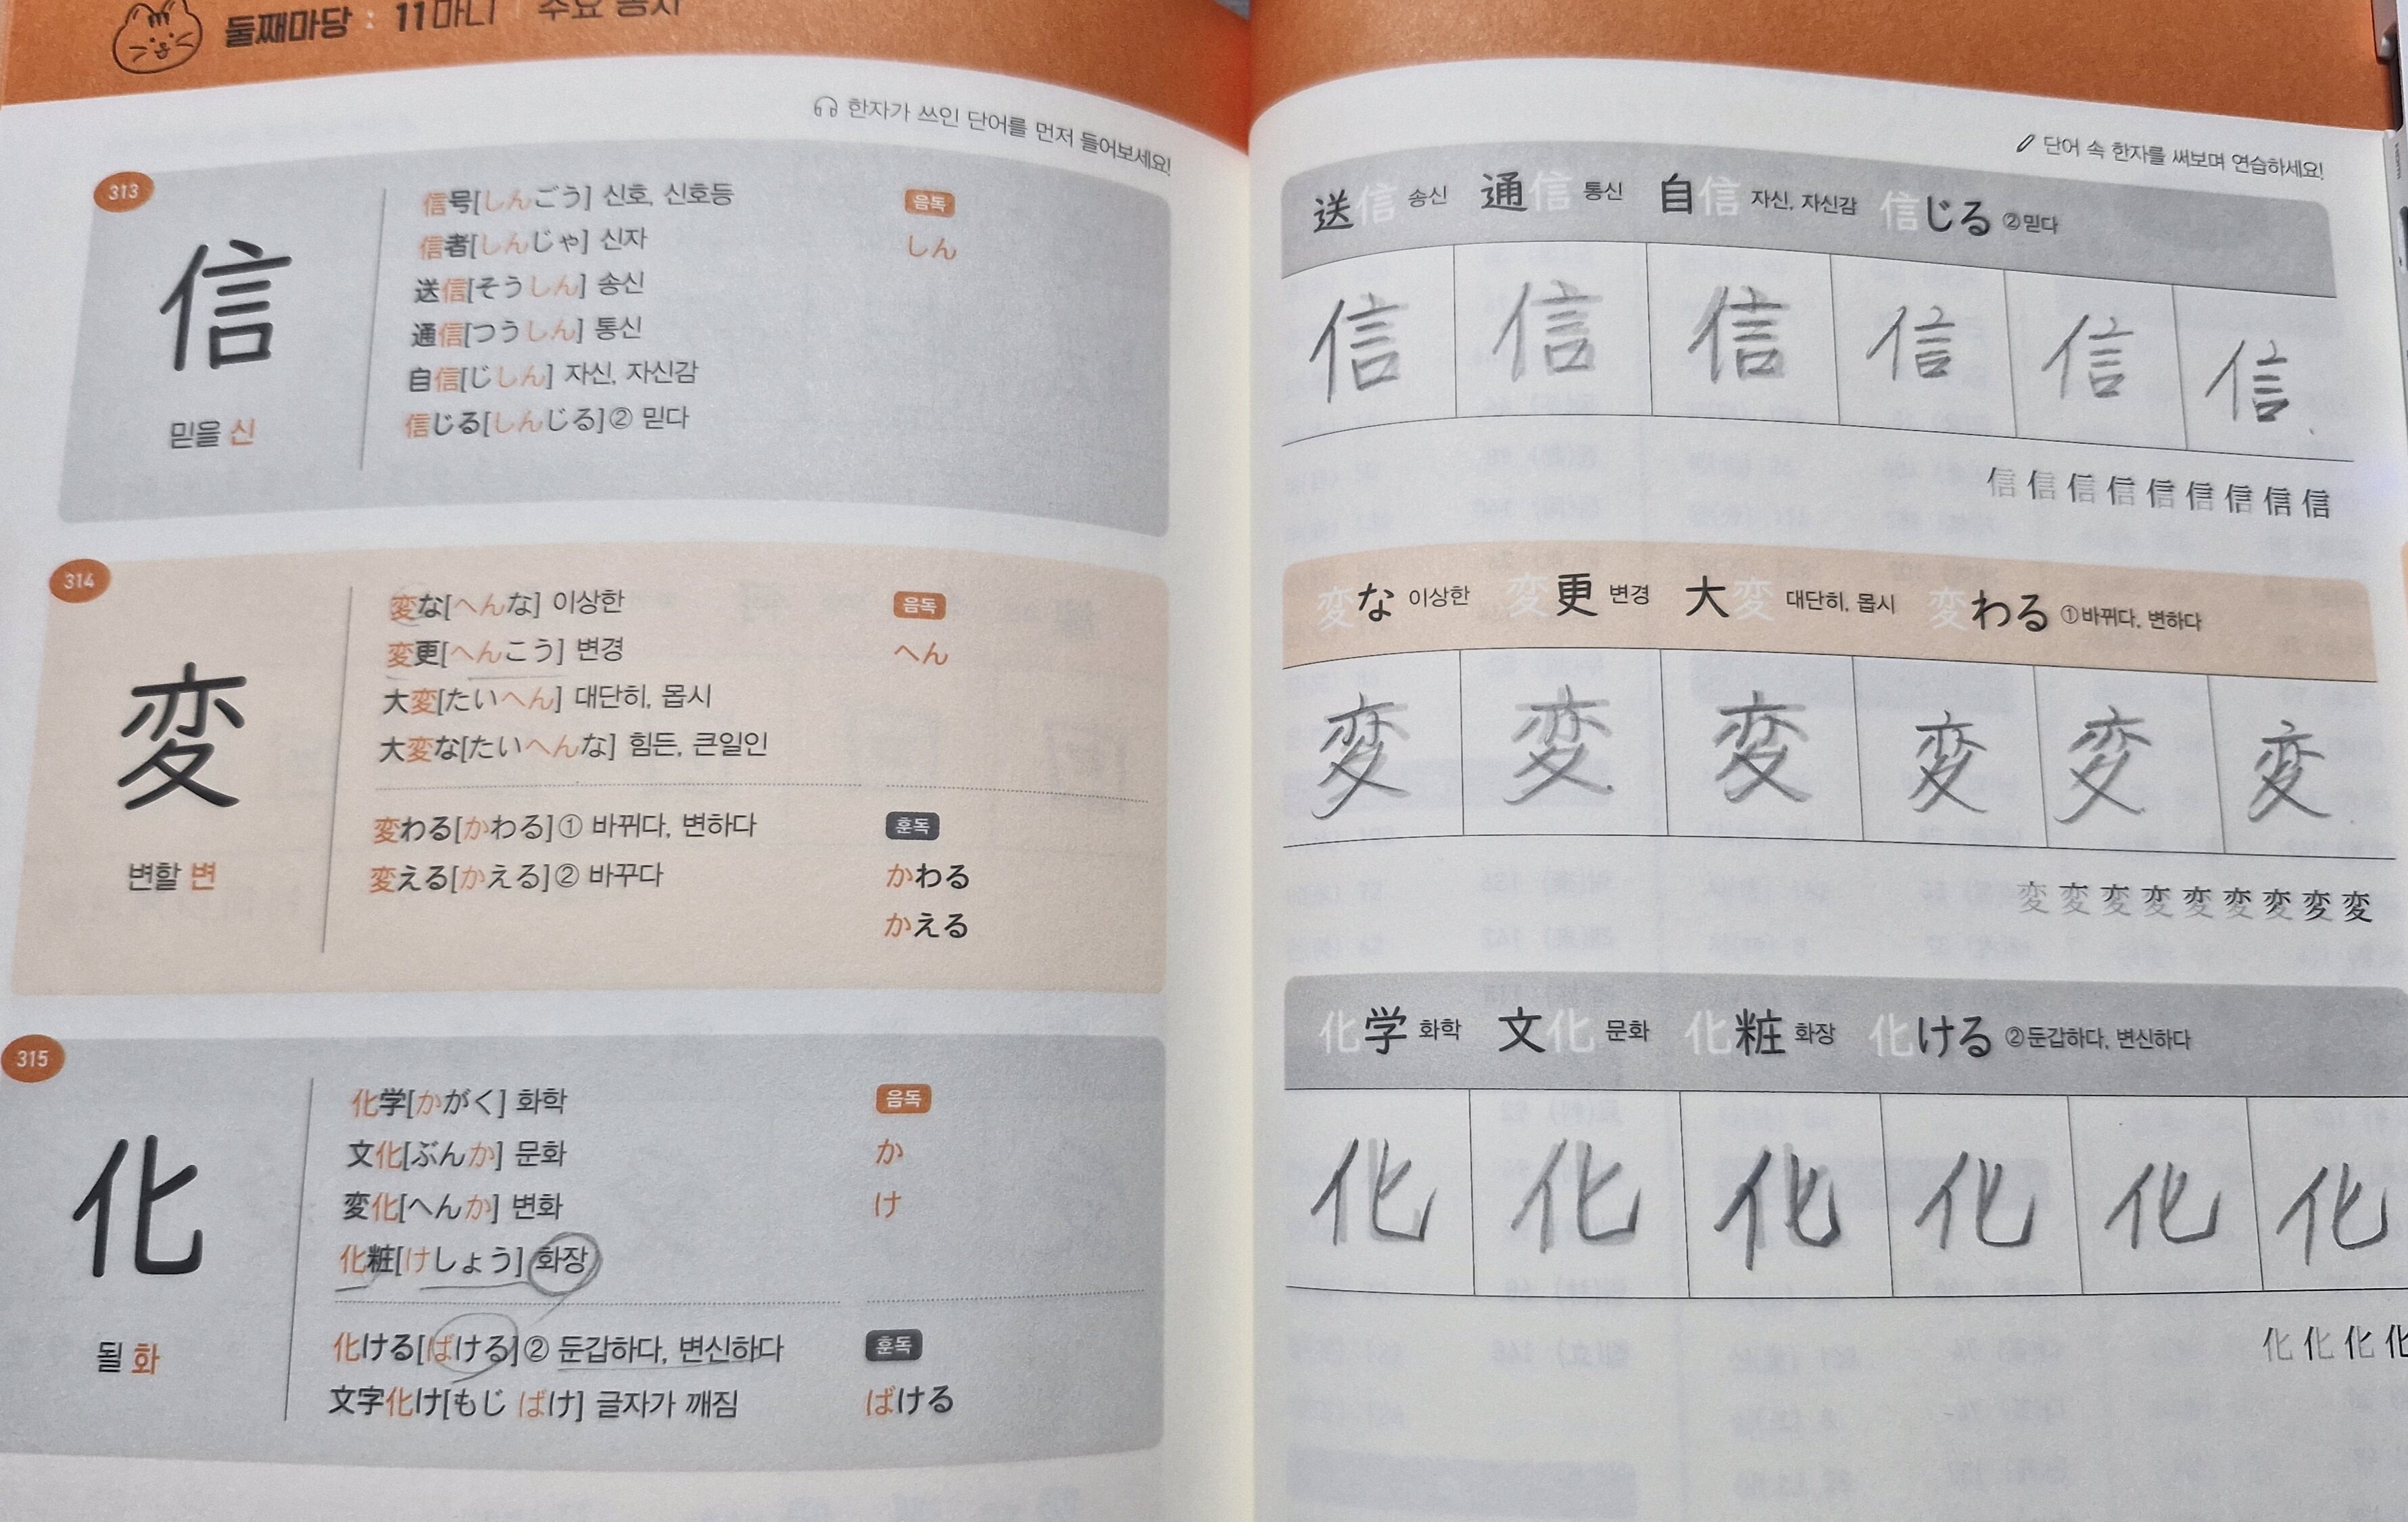 둘째마당 : 11마디 주요 동사
한자가 쓰인 단어를 먼저 들어보세요!
313
信
믿을 신
信号[しんごう] 신호, 신호등
信者[しんじゃ] 신자
送信[そうしん] 송신
通信[つうしん] 통신
自信[じしん] 자신, 자신감
信じる[しんじる]② 믿다
음독
しん
314
変
변할 변
変な[へんな] 이상한
変更[へんこう] 변경
大変[たいへん] 대단히, 몹시
大変な[たいへんな] 힘든, 큰일인
음독
へん
変わる[かわる]① 바뀌다, 변하다
変える[かえる]② 바꾸다
훈독
かわる
かえる
315
化
될 화
化学[かがく] 화학
文化[ぶんか] 문화
変化[へんか] 변화
化粧[けしょう] 화장
음독
か
け
化ける[ばける]② 둔갑하다, 변신하다
文字化け[もじ ばけ] 글자가 깨짐
훈독
ばける
단어 속 한자를 써보며 연습하세요!
送信 송신 通信 통신 自信 자신, 자신감 信じる ②믿다
信 信 信 信 信 信
信 信 信 信 信 信 信 信 信
変な 이상한 変更 변경 大変 대단히, 몹시 変わる ①바뀌다, 변하다
変 変 変 変 変 変
変 変 変 変 変 変 変 変 変
化学 화학 文化 문화 化粧 화장 化ける ②둔갑하다, 변신하다
化 化 化 化 化 化
化 化 化 化